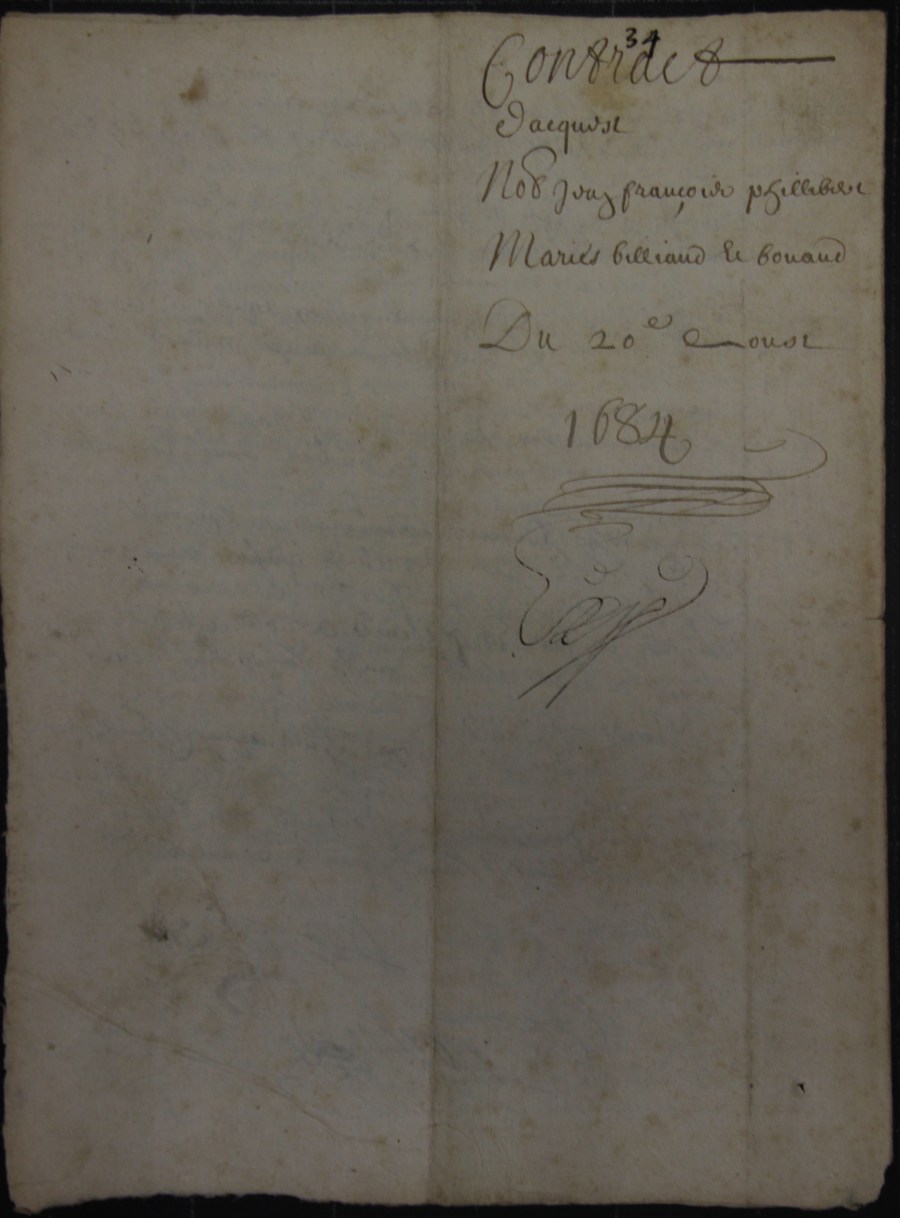 34
Contract
d'acquest
Not Jean françois phillibert
Mariés billiaud & bouaud
Du 20e Aoust
1684